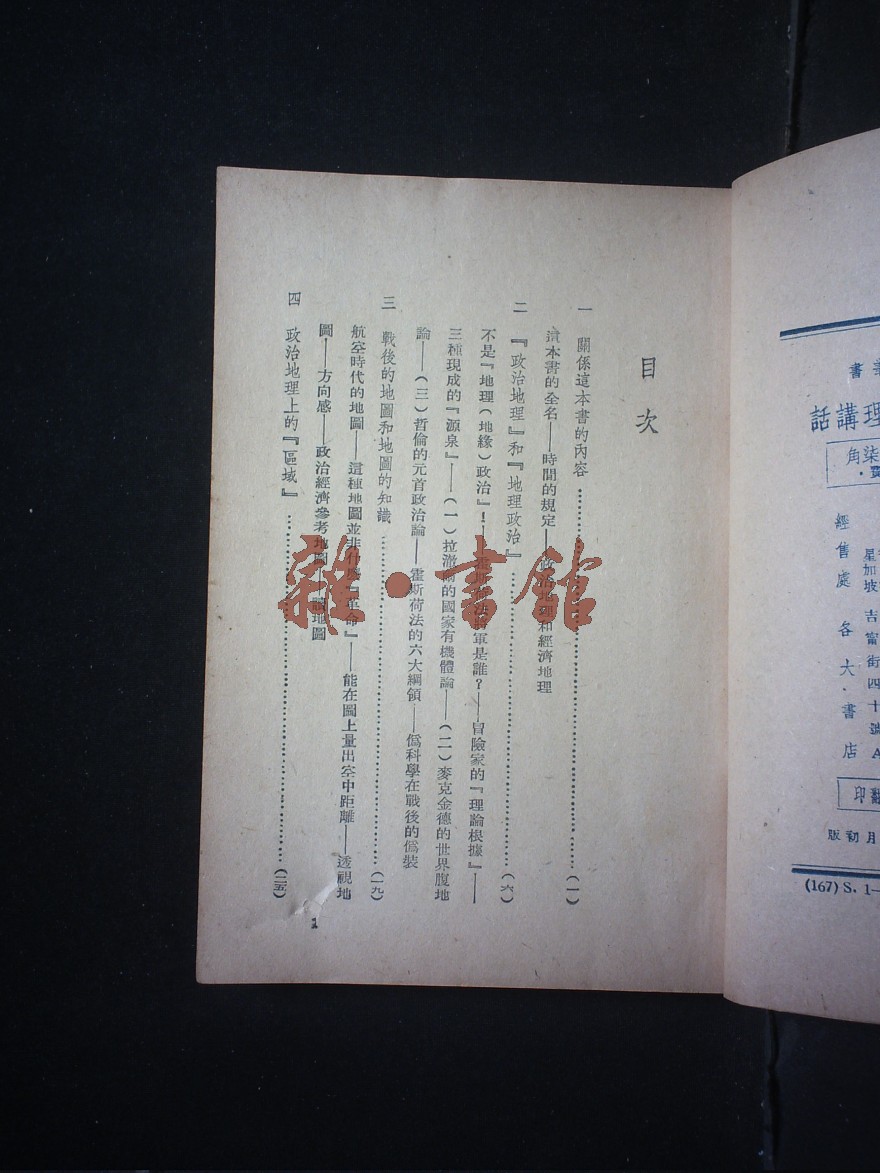 目次
一 關係這本書的內容……（一）
這本書的全名——時間的規定——政治地理和經濟地理
二 『政治地理』和『地理政治』……（六）
不是『地理（地緣）政治』！——霍斯荷法將軍是誰？——冒險家的『理論根據』——
三種現成的『源泉』——（一）拉澈爾的國家有機體論——（二）麥克金德的世界腹地
論——（三）哲倫的元首政治論——霍斯荷法的六大綱領——僞科學在戰後的僞裝
三 戰後的地圖和地圖的知識……（一九）
航空時代的地圖——這種地圖並非什麼『革命』——能在圖上量出空中距離——透視地
圖——方向感——政治經濟參考地圖——讀地圖
四 政治地理上的『區域』……（二五）
1
雜·書館
書
理講話
柒角
經售處 各大書店
星加坡
吉甯街四十號A
翻印
月初版
(167) S. 1—